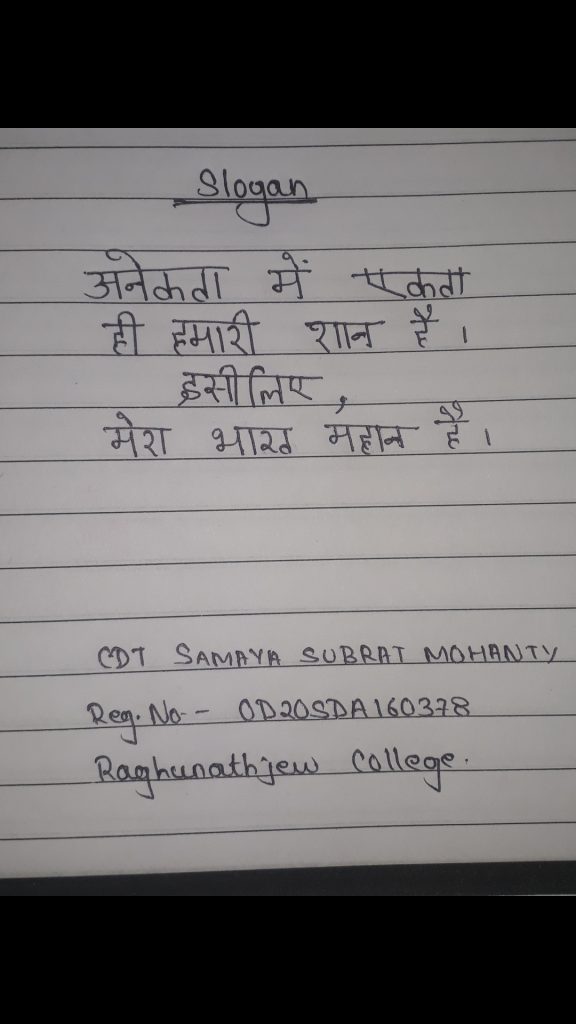 Slogan
अनेकता में एकता
ही हमारी शान है ।
इसीलिए,
मेरा भारत महान है ।
CDT SAMAYA SUBRAT MOHANTY
Reg. No - OD20SDA160378
Raghunathjew College.